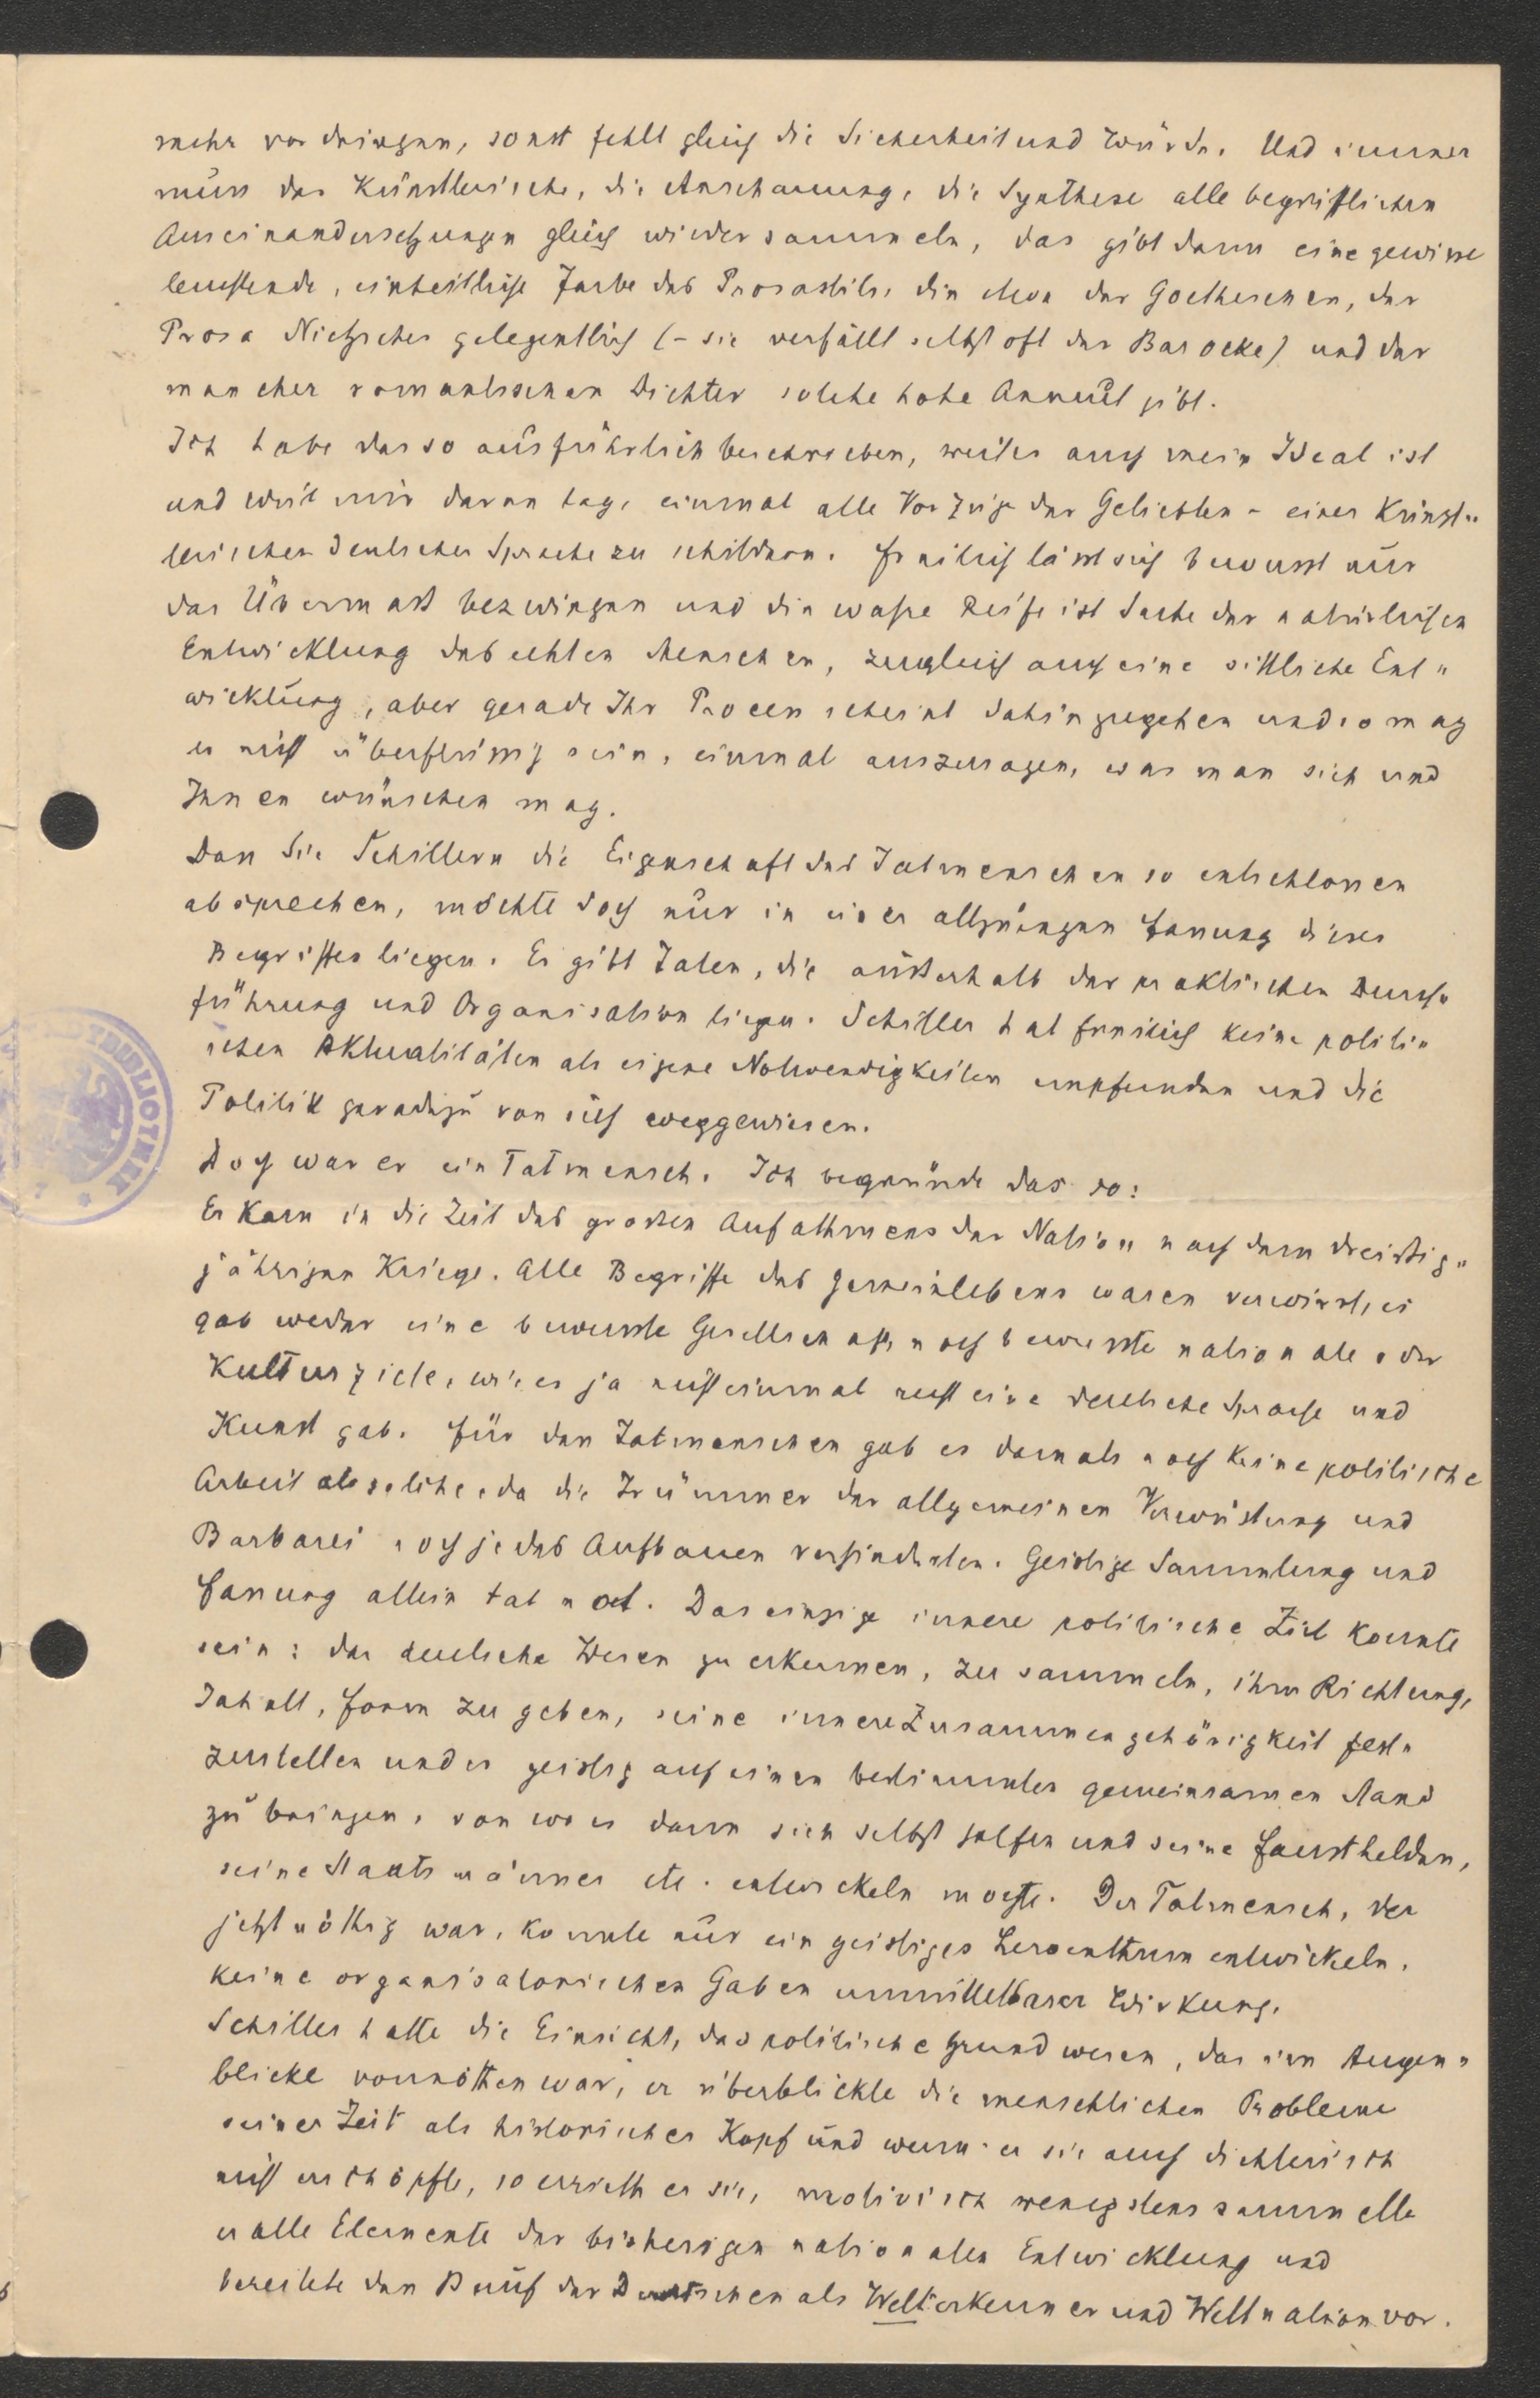 mehr vordringen, sonst fehlt gleich die Sicherheit und Würde. Und immer
muss das Künstlerische, die Anschauung, die Synthese alle begrifflichen
Auseinandersetzungen gleich wieder sammeln, das gibt dann eine gewisse
leuchtende, einheitliche Farbe des Prosastils, die etwa der Goetheschen, der
Prosa Nietzsches gelegentlich (– sie verfällt selbst oft der Barocke) und der
mancher romantischen Dichter solche hohe Anmut gibt.
Ich habe das so ausführlich beschrieben, weil es auch mein Ideal ist
und weil mir daran lag, einmal alle Vorzüge der Geliebten – einer künst„
lerischen deutschen Sprache zu schildern. Freilich lässt sich bewusst nur
das Übermass bezwingen und die wahre Reife ist Sache der natürlichen
Entwicklung des echten Menschen, zugleich auch eine sittliche Ent„
wicklung, aber gerade Ihr Process scheint dahin zu gehen und so mag
es nicht überflüssig sein, einmal auszusagen, was man sich und
Ihnen wünschen mag.
Dass Sie Schillern die Eigenschaft des Tatmenschen so entschlossen
absprechen, möchte doch nur in einer allzu engen Fassung dieses
Begriffes liegen. Es gibt Taten, die ausserhalb der praktischen Durch„
führung und Organisation liegen. Schiller hat freilich keine politi„
schen Aktualitäten als eigene Notwendigkeiten empfunden und die
Politik geradezu von sich weggewiesen.
Doch war er ein Tatmensch. Ich begründe das so:
Er kam in die Zeit des grossen Aufathmens der Nation nach dem dreissig„
jährigen Kriege. Alle Begriffe des Gemeinlebens waren verwirrt, es
gab weder eine bewusste Gesellschaft, noch bewusste nationale oder
Kulturziele, wie es ja nicht einmal recht eine deutsche Sprache und
Kunst gab. Für den Tatmenschen gab es damals noch keine politische
Arbeit als solche, da die Trümmer der allgemeinen Verwüstung und
Barbarei noch jedes Aufbauen verhinderten. Geistige Sammlung und
Fassung allein tat not. Das einzige innere politische Ziel konnte
sein: das deutsche Wesen zu erkennen, zu sammeln, ihm Richtung,
Inhalt, Form zu geben, seine innere Zusammengehörigkeit fest„
zustellen und es geistig auf einen bestimmten gemeinsamen Stand
zu bringen, von wo es dann sich selbst helfen und seine Fausthelden,
seine Staatsmänner etc. entwickeln mochte. Der Tatmensch, der
jetzt nöthig war, konnte nur ein geistiges Heroenthum entwickeln,
keine organisatorischen Gaben unmittelbarer Wirkung.
Schiller hatte die Einsicht, das politische Grundwesen, das im Augen„
blicke vonnöthen war, er überblickte die menschlichen Probleme
seiner Zeit als historischer Kopf und wenn er sie auch dichterisch
nicht erschöpfte, so erriet er sie, motivisch wenigstens sammelte
er alle Elemente der bisherigen nationalen Entwicklung und
bereitete den Beruf der Deutschen als Welterkenner und Weltnation vor.